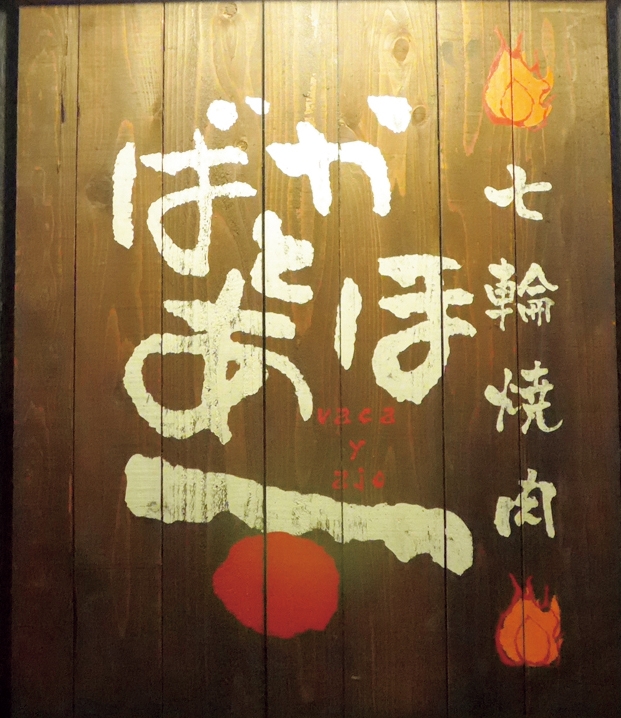 七輪焼肉
ばか
と
あほ
vaca
y
ajo